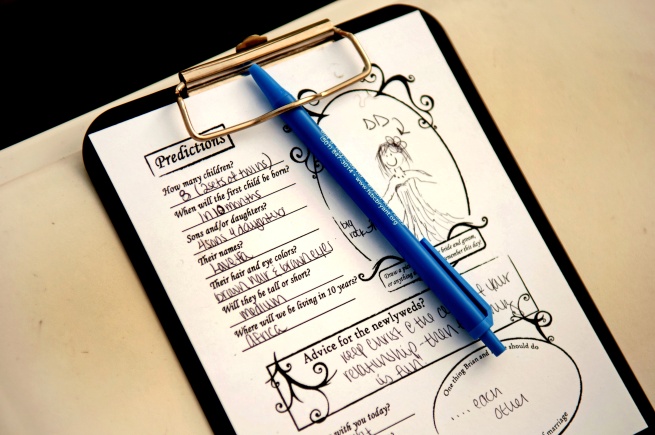 Predictions
How many children?
8 (2 sets of twins)
When will the first child be born?
in 10 months
Sons and/or daughters?
4 sons 4 daughters
Their names?
Their hair and eye colors?
brown hair & brown eyes
Will they be tall or short?
medium
Where will we be living in 10 years?
Africa
DD
big
bride and groom,
or anything
remember this day
Advice for the newlyweds?
keep christ @ the your
relationship then
is fun
One thing Brian and should do
.... each
other
of marriage
with you today?